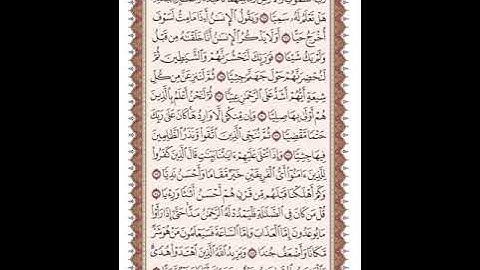 هَلْ تَعْلَمُ لَهُۥ سَمِيًّا ۝٦٥ وَيَقُولُ ٱلْإِنسَٰنُ أَءِذَا مَا مِتُّ لَسَوْفَ
أُخْرَجُ حَيًّا ۝٦٦ أَوَلَا يَذْكُرُ ٱلْإِنسَٰنُ أَنَّا خَلَقْنَٰهُ مِن قَبْلُ
وَلَمْ يَكُ شَيْـًٔا ۝٦٧ فَوَرَبِّكَ لَنَحْشُرَنَّهُمْ وَٱلشَّيَٰطِينَ ثُمَّ
لَنُحْضِرَنَّهُمْ حَوْلَ جَهَنَّمَ جِثِيًّا ۝٦٨ ثُمَّ لَنَنزِعَنَّ مِن كُلِّ
شِيعَةٍ أَيُّهُمْ أَشَدُّ عَلَى ٱلرَّحْمَٰنِ عِتِيًّا ۝٦٩ ثُمَّ لَنَحْنُ أَعْلَمُ بِٱلَّذِينَ
هُمْ أَوْلَىٰ بِهَا صِلِيًّا ۝٧٠ وَإِن مِّنكُمْ إِلَّا وَارِدُهَا كَانَ عَلَىٰ رَبِّكَ
حَتْمًا مَّقْضِيًّا ۝٧١ ثُمَّ نُنَجِّى ٱلَّذِينَ ٱتَّقَوا۟ وَّنَذَرُ ٱلظَّٰلِمِينَ
فِيهَا جِثِيًّا ۝٧٢ وَإِذَا تُتْلَىٰ عَلَيْهِمْ ءَايَٰتُنَا بَيِّنَٰتٍ قَالَ ٱلَّذِينَ كَفَرُوا۟
لِلَّذِينَ ءَامَنُوٓا۟ أَىُّ ٱلْفَرِيقَيْنِ خَيْرٌ مَّقَامًا وَأَحْسَنُ نَدِيًّا ۝٧٣
وَكَمْ أَهْلَكْنَا قَبْلَهُم مِّن قَرْنٍ هُمْ أَحْسَنُ أَثَٰثًا وَرِءْيًا ۝٧٤
قُلْ مَن كَانَ فِى ٱلضَّلَٰلَةِ فَلْيَمْدُدْ لَهُ ٱلرَّحْمَٰنُ مَدًّا حَتَّىٰٓ إِذَا رَأَوْا۟
مَا يُوعَدُونَ إِمَّا ٱلْعَذَابَ وَإِمَّا ٱلسَّاعَةَ فَسَيَعْلَمُونَ مَنْ هُوَ شَرٌّ
مَّكَانًا وَأَضْعَفُ جُندًا ۝٧٥ وَيَزِيدُ ٱللَّهُ ٱلَّذِينَ ٱهْتَدَوْا۟ هُدًى